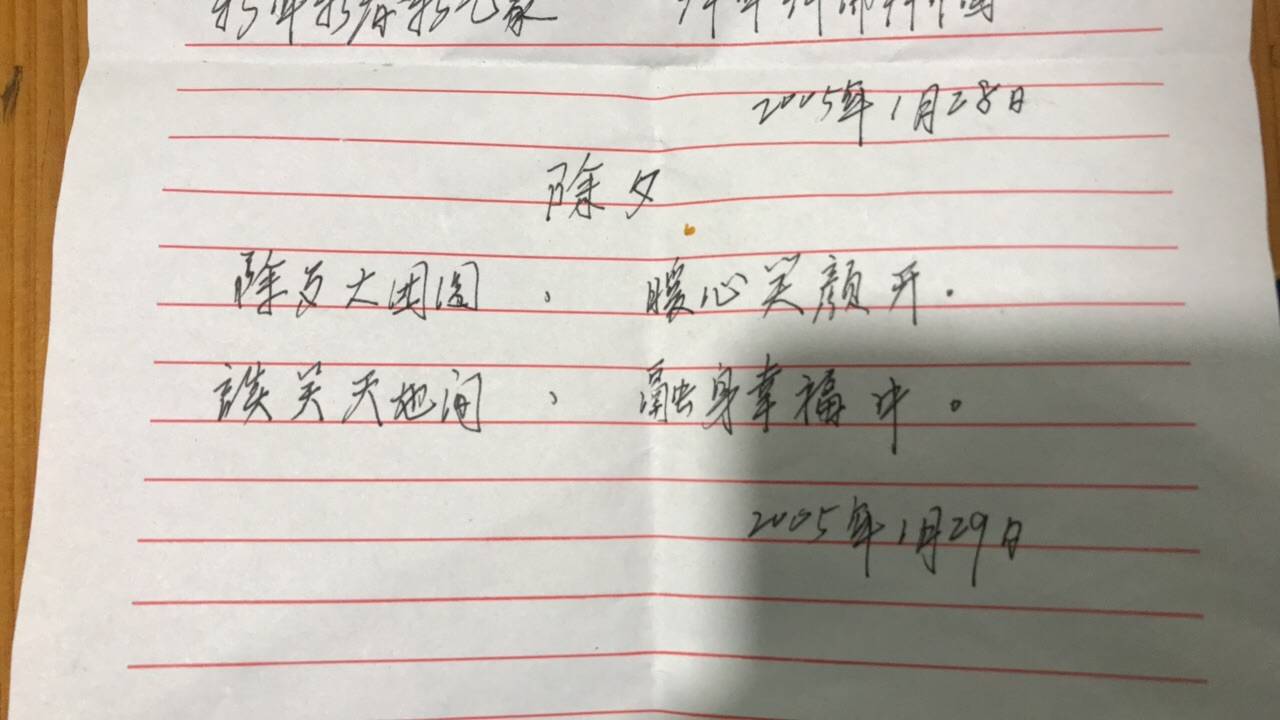 新年新春新气象
2005年1月28日
除夕
除岁大团圆，暖心笑颜开.
谈笑天地间，融身幸福中。
2005年1月29日